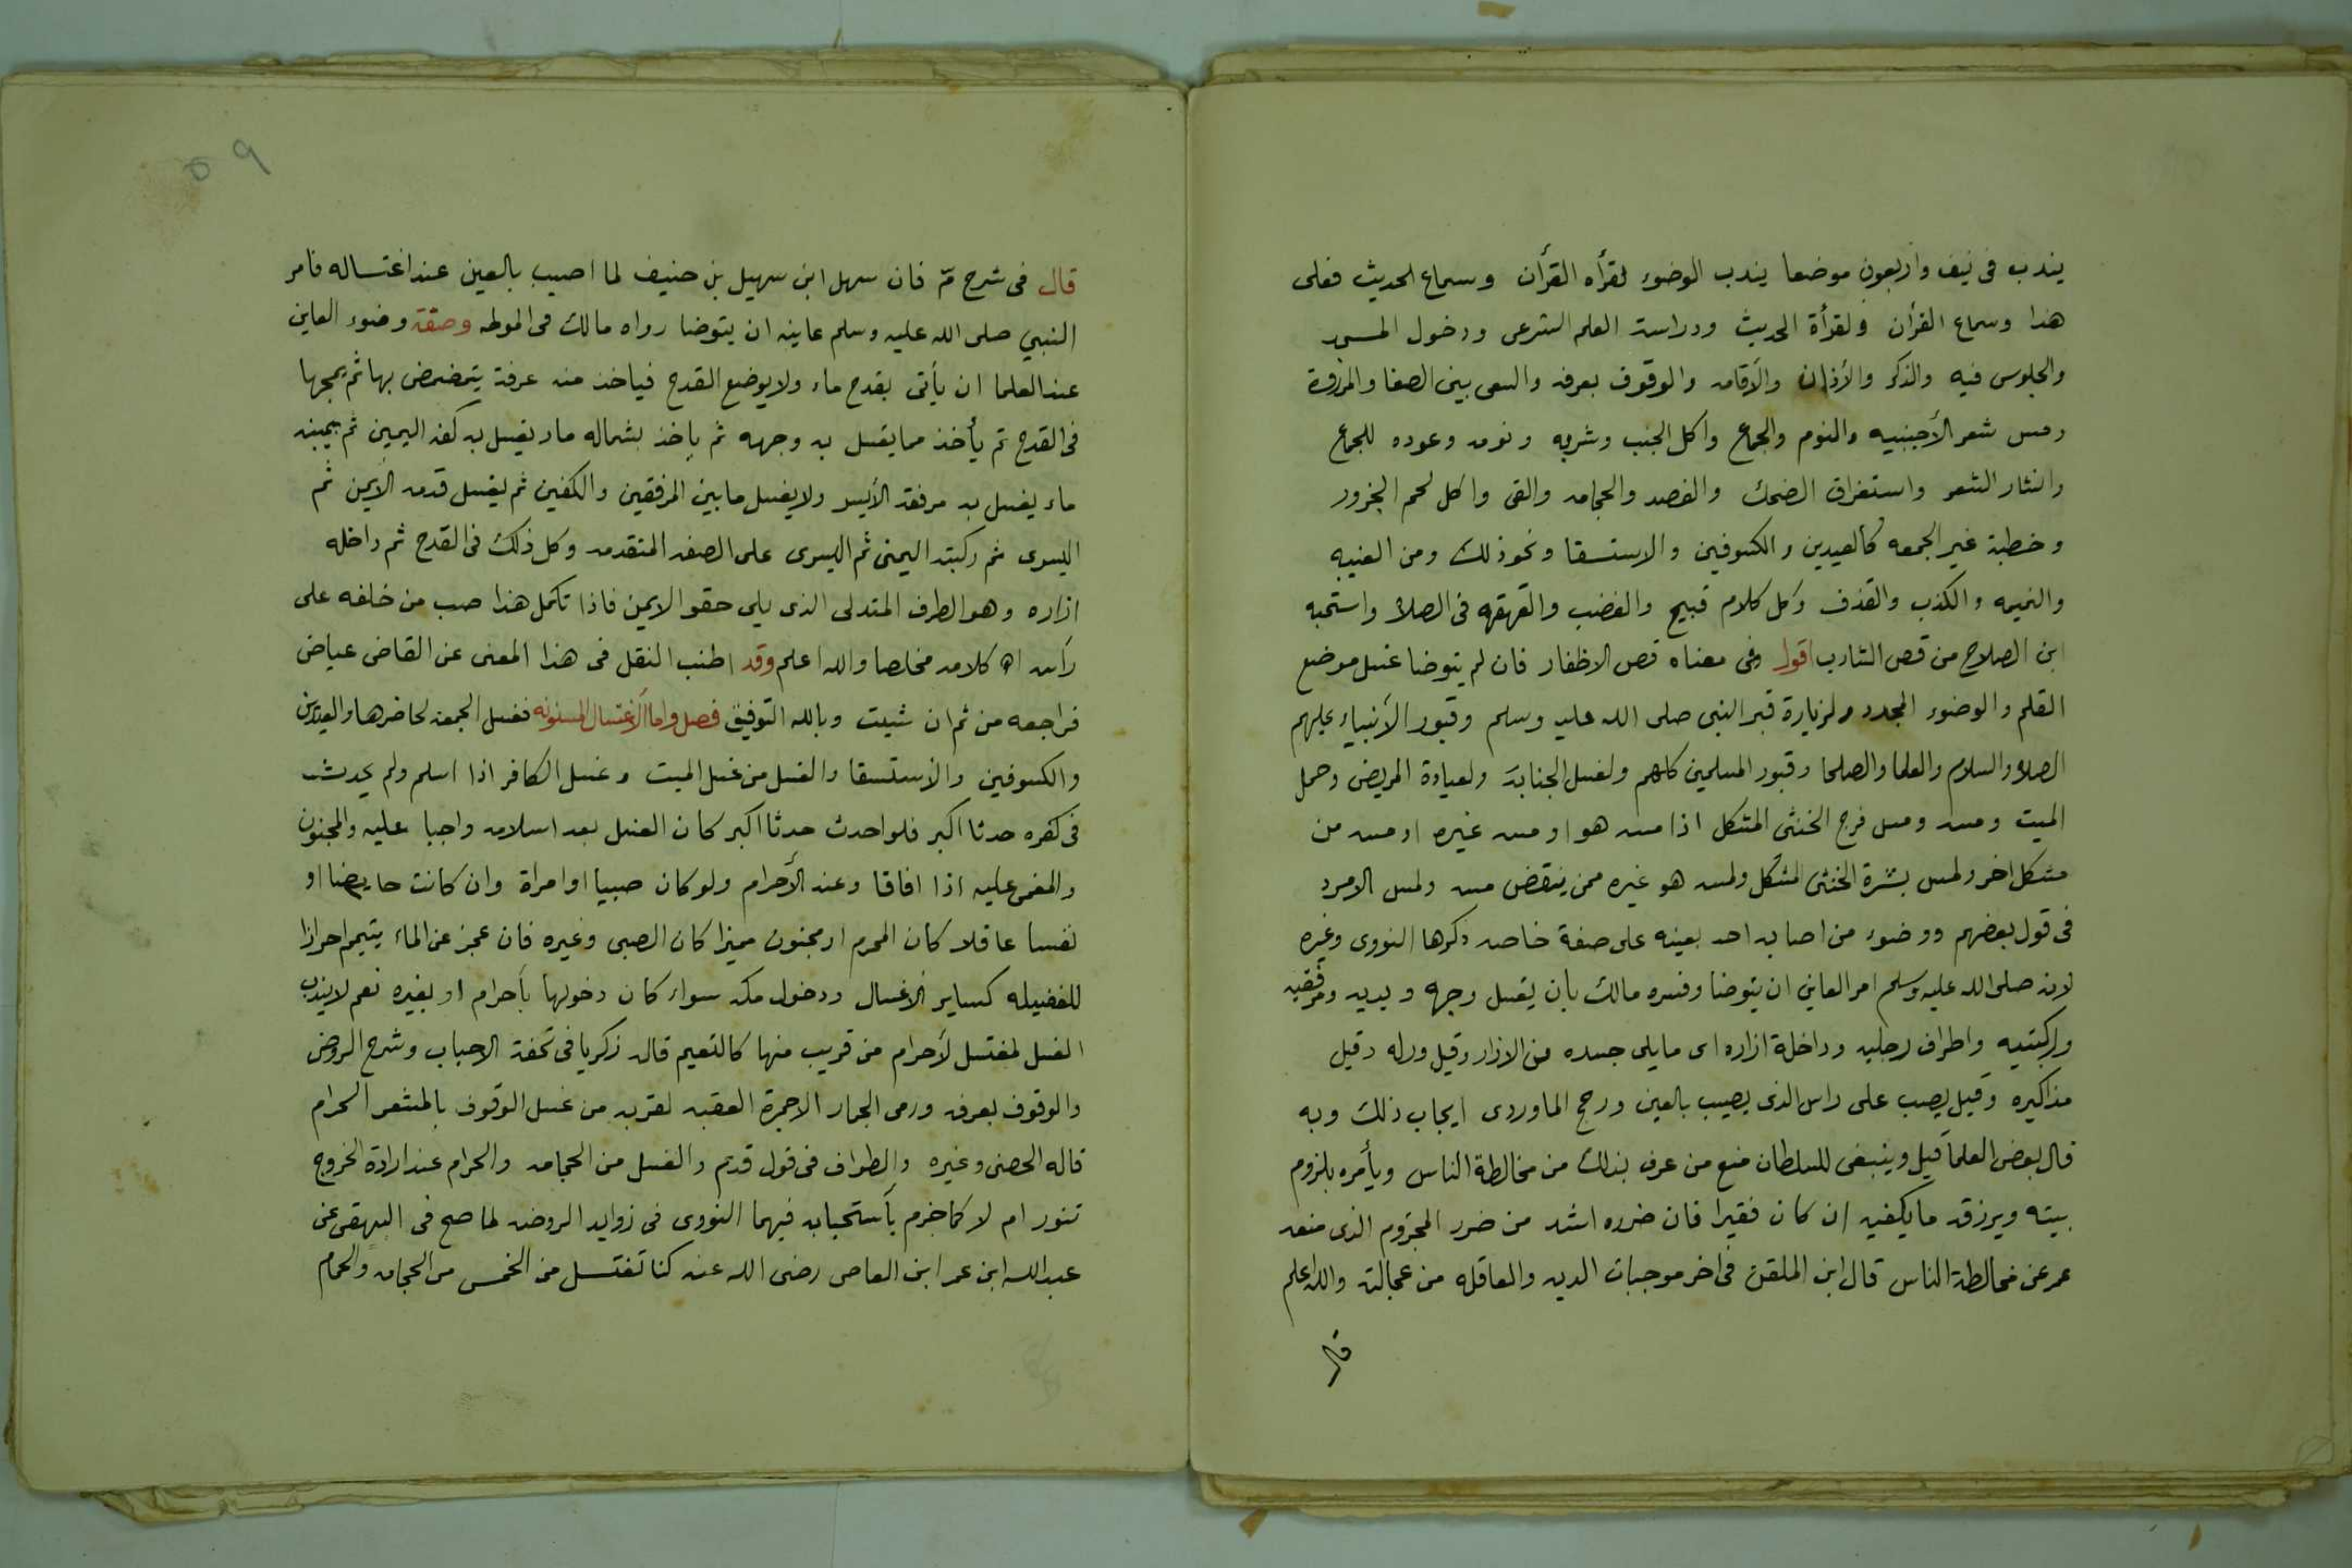 يندب فى نيف واربعون موضعا يندب الوضوء لقرأه القرأن وسماع الحديث فعلى
هذا وسماع القرأن ولقرأة الحديث ودراسة العلم الشرعى ودخول المسجد
والجلوس فيه والذكر والأذان والأقامه والوقوف بعرفه والسعى بين الصفا والمروة
ومس شعر الأجنبيه والنوم والجماع واكل الجنب وشربه ونومه وعوده للجماع
وانثار الشعر واستغراق الضحك والفصد والحجامه والقى واكل لحم الجزور
وخطبة غير الجمعه كالعيدين والكسوفين والاستسقا ونحو ذلك ومن الغيبه
والنميمه والكذب والقذف وكل كلام قبيح والغضب والقهقهه فى الصلاة واستحبه
ابن الصلاح من قص الشارب اقول وفى معناه قص الاظفار فان لم يتوضا غسل موضع
القلم والوضوء المجدد ولزيارة قبر النبى صلى الله عليه وسلم وقبور الأنبياء عليهم
الصلاة والسلام والعلما والصلحا وقبور المسلمين كلهم ولغسل الجنابة ولعيادة المريض وحمل
الميت ومسه ومس فرج الخنثى المشكل اذا مسه هو او مسه غيره او مسه من
مشكل اخر ولمس بشرة الخنثى المشكل ولمسه هو غيره ممن ينقض مسه ولمس الامرد
فى قول بعضهم ووضوء من اصابه احد بعينه على صفة خاصه ذكرها النووى وغيره
لانه صلى الله عليه وسلم امر العاين ان يتوضا وفسره مالك بان يغسل وجهه ويديه ومرفقيه
وركبتيه واطراف رجليه وداخلة ازاره اى مايلى جسده من الازار وقيل وركه وقيل
مذاكيره وقيل يصب على راس الذى يصيب بالعين ورجح الماوردى ايجاب ذلك وبه
قال بعض العلما قيل وينبغى للسلطان منع من عرف بذلك من مخالطة الناس ويأمره بلزوم
بيته ويرزقه مايكفيه ان كان فقيرا فان ضرره اشد من ضرر المجذوم الذى منعه
عمر عن مخالطة الناس قال ابن الملقن فى اخر موجبات الديه والعاقله من عجالته والله اعلم
قال
٥٩
قال فى شرح مّ فان سهل ابن سهيل بن حنيف لما اصيب بالعين عند اغتساله فامر
النبي صلى الله عليه وسلم عاينه ان يتوضا رواه مالك فى الموطه وصفة وضوء العاين
عند العلما ان يأتى بقدح ماء ولا يوضع القدح فياخذ منه غرفة يتمضمض بها ثم يمجها
فى القدح ثم يأخذ مما يغسل به وجهه ثم ياخذ بشماله ماء يغسل به كفه اليمين ثم بيمينه
ماء يغسل به مرفقه الأيسر ولا يغسل ما بين المرفقين والكفين ثم يغسل قدمه الأيمن ثم
اليسرى ثم ركبته اليمنى ثم اليسرى على الصفه المتقدمه وكل ذلك فى القدح ثم داخله
ازاره وهو الطرف المتدلى الذى يلى حقو الايمن فاذا تكمل هذا صب من خلفه على
رأسه اه كلامه مخلصا والله اعلم وقد اطنب النقل فى هذا المعنى عن القاضى عياض
فراجعه من ثم ان شيت وبالله التوفيق فصل واما الأغتسال المسنونه فغسل الجمعه لحاضرها والعيدين
والكسوفين والأستسقا والغسل من غسل الميت وغسل الكافر اذا اسلم ولم يحدث
فى كفره حدثا اكبر فلو احدث حدثا اكبر كان الغسل بعد اسلامه واجبا عليه والمجنون
والمغمى عليه اذا افاقا وعند الأحرام ولو كان صبيا او امراة وان كانت حايضا او
نفسا عاقلا كان المحرم او مجنون مميزا كان الصبى وغيره فان عجز عن الماء يتيمم احرازا
للفضيله كساير الاغسال ودخول مكه سواء كان دخولها بأحرام او بغيره نعم لا يندب
الغسل لمغتسل لأحرام من قريب منها كالتعيم قاله زكريا فى تحفة الاحباب وشرح الروض
والوقوف بعرفه ورمى الجمار الاجمرة العقبه لقربه من غسل الوقوف بالمشعر الحرام
قاله الحصنى وغيره والطواف فى قول قديم والغسل من الحجامه والحرام عند ارادة الخروج
تنور ام لا كما جزم بأستحبابه فيهما النووى فى زوايد الروضه لما صح فى البيهقى عن
عبد الله ابن عمر ابن العاص رضى الله عنه كنا نغتسل من الخمس من الحجامه والحمام